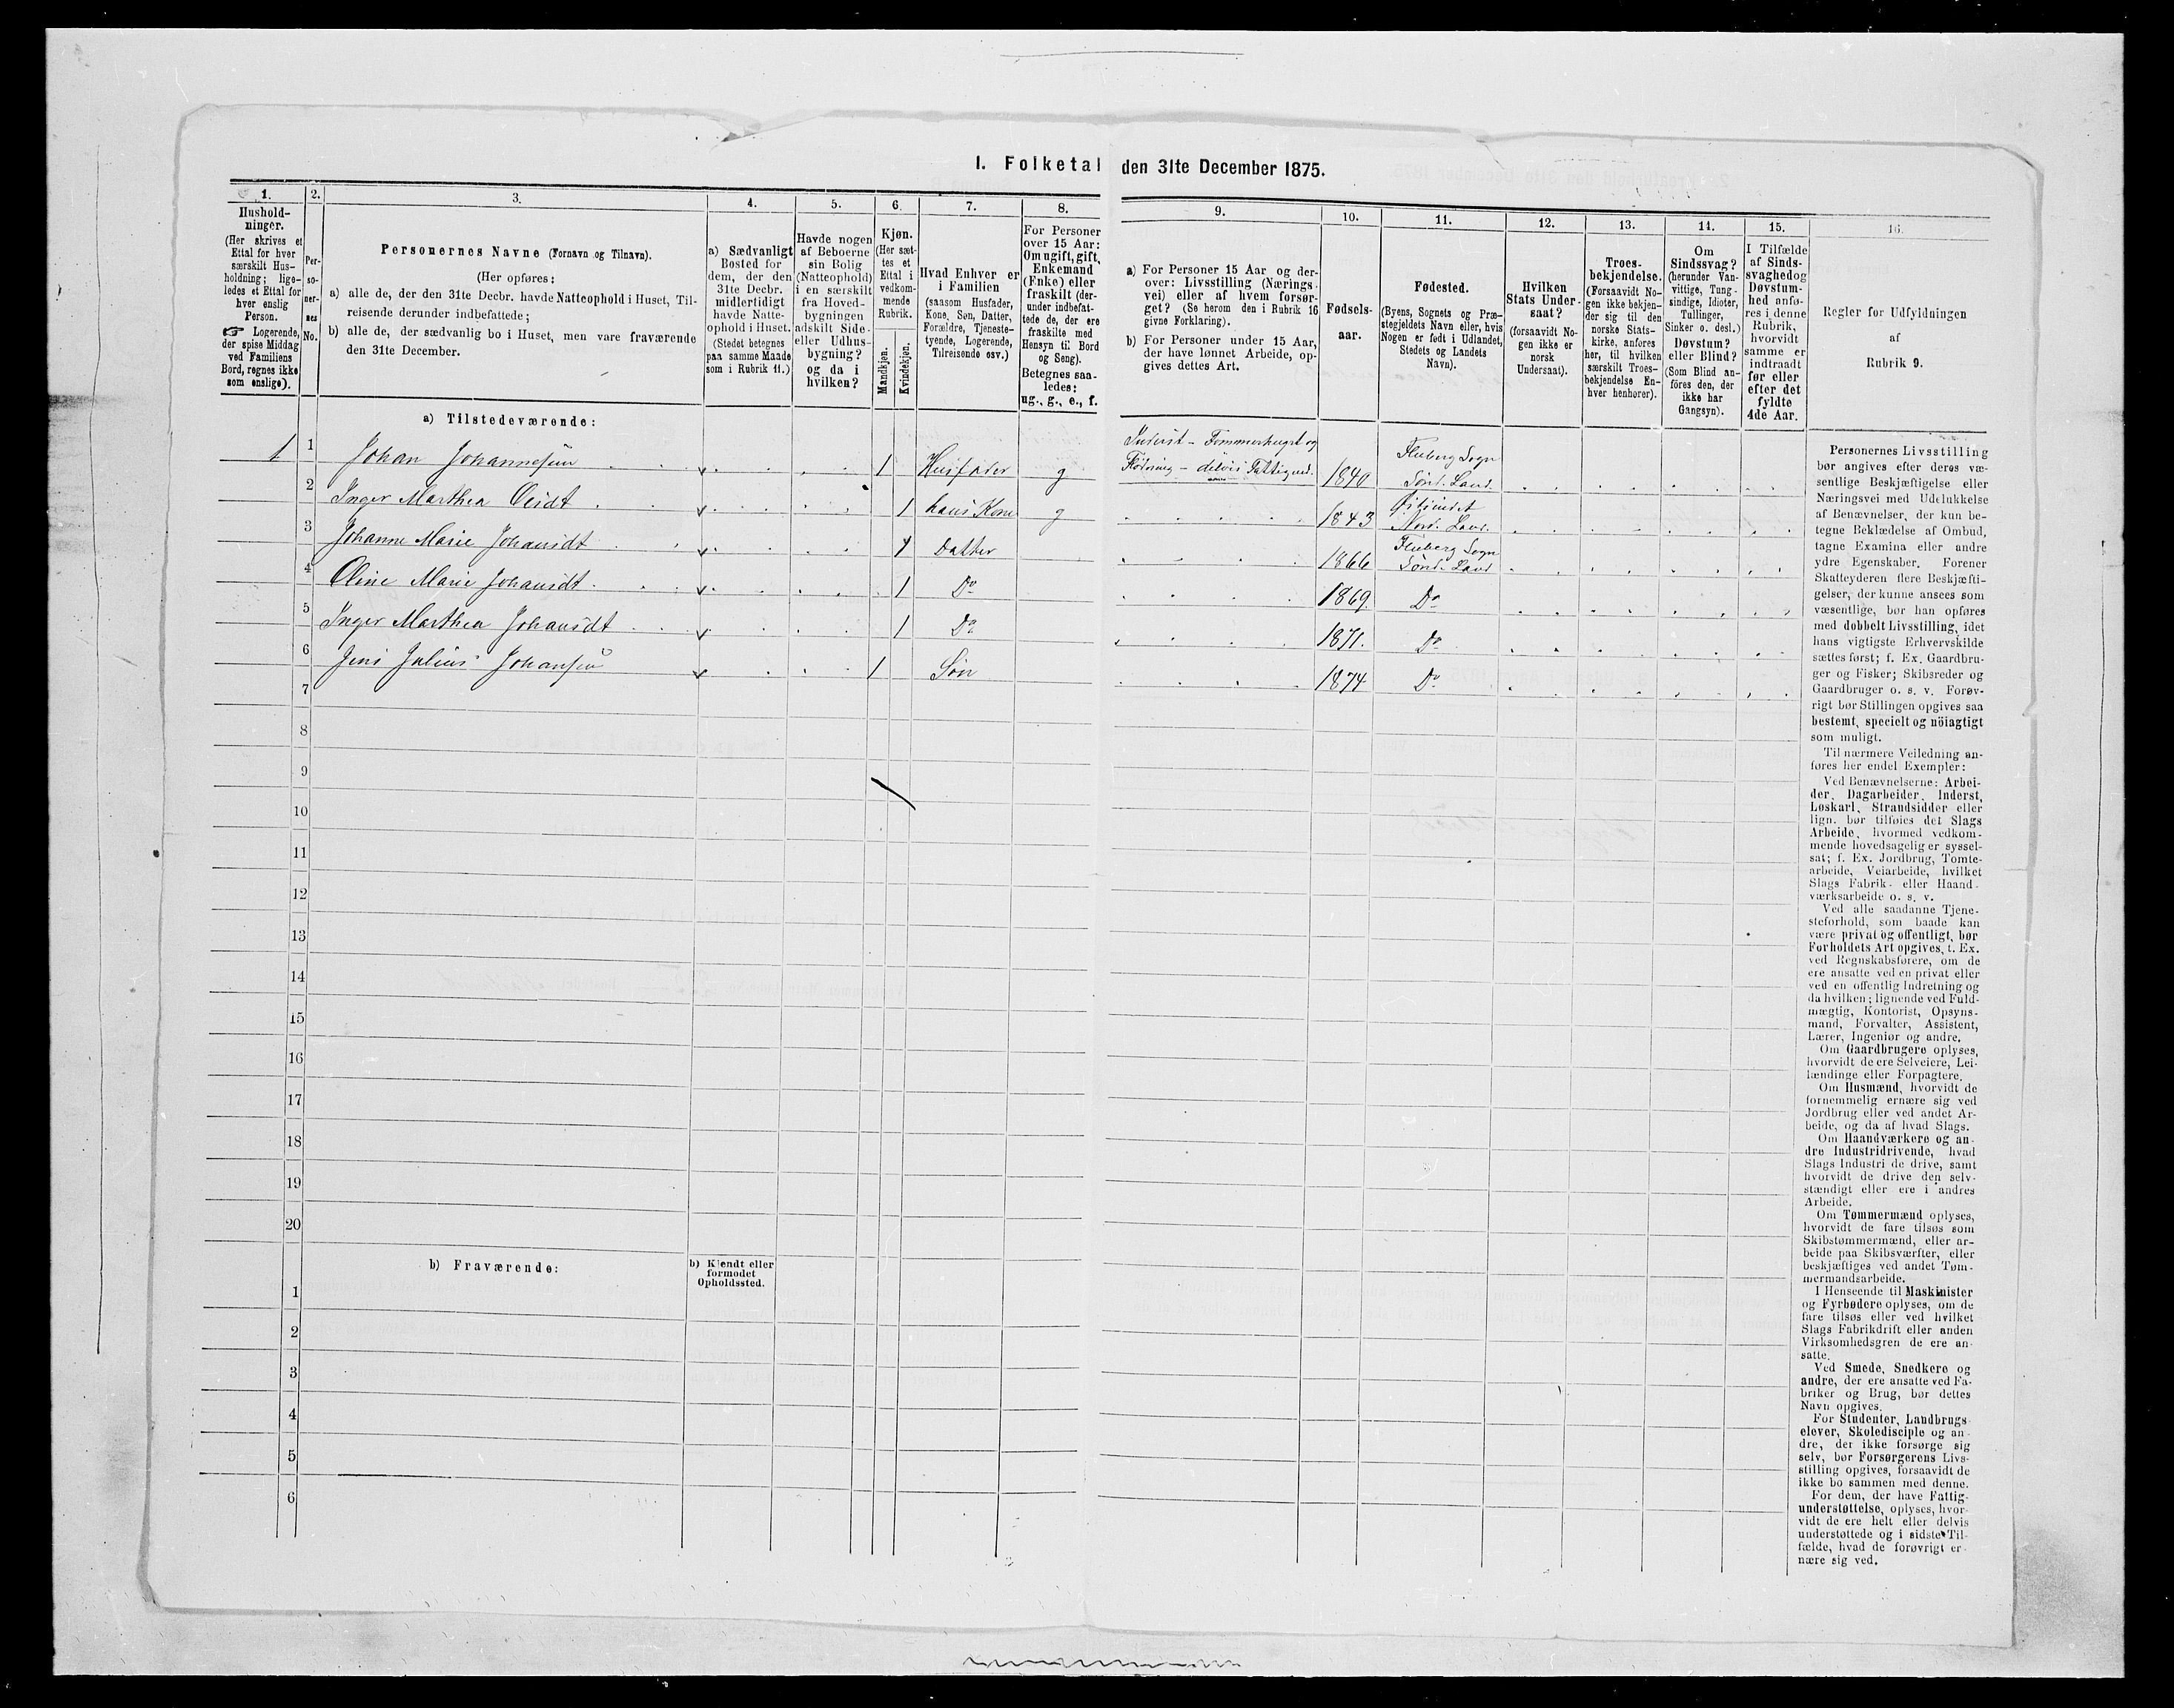 I. Folketal den 31te December 1875.
1.
Hushold-
ninger.
(Her skrives et
Ettal for hver
særskilt Hus-
holdning; lige-
ledes et Ettal for
hver enslig
Person.
☞ Logerende,
der spise Middag
ved Familiens
Bord, regnes ikke
som enslige).
2.
Per-
so-
ner-
nes
No.
3.
Personernes Navne (Fornavn og Tilnavn).
(Her opføres:
a) alle de, der den 31te Decbr. havde Natteophold i Huset, Til-
reisende derunder indbefattede;
b) alle de, der sædvanlig bo i Huset, men vare fraværende
den 31te December.
4.
a) Sædvanligt
Bosted for
dem, der den
31te Decbr.
midlertidigt
havde Natte-
ophold i Huset.
(Stedet betegnes
paa samme Maade
som i Rubrik 11.)
5.
Havde nogen
af Beboerne
sin Bolig
(Natteophold)
i en særskilt
fra Hoved-
bygningen
adskilt Side-
eller Udhus-
bygning?
og da i
hvilken?
6.
Kjøn.
(Her sæt-
tes et
Ettal i
vedkom-
mende
Rubrik.
Mandkjøn.
Kvindekjøn.
7.
Hvad Enhver er
i Familien
(saasom Husfader,
Kone, Søn, Datter,
Forældre, Tjeneste-
tyende, Logerende,
Tilreisende osv.)
8.
For Personer
over 15 Aar:
Om ugift, gift,
Enkemand
(Enke) eller
fraskilt (der-
under indbefat-
tede de, der ere
fraskilte med
Hensyn til Bord
og Seng).
Betegnes saa-
ledes:
ug., g., e., f.
9.
a) For Personer 15 Aar og der-
over: Livsstilling (Nærings-
vei) eller af hvem forsør-
get? (Se herom den i Rubrik 16
givne Forklaring).
b) For Personer under 15 Aar,
der have lønnet Arbeide, op-
gives dettes Art.
10.
Fødsels-
aar.
11.
Fødested.
(Byens, Sognets og Præ-
stegjeldets Navn eller, hvis
Nogen er født i Udlandet,
Stedets og Landets
Navn).
12.
Hvilken
Stats Under-
saat?
(forsaavidt No-
gen ikke er
norsk
Undersaat).
13.
Troes-
bekjendelse.
(Forsaavidt No-
gen ikke bekjen-
der sig til den
norske Stats-
kirke, anføres
her, til hvilken
særskilt Troes-
bekjendelse En-
hver henhører).
14.
Om
Sindssvag?
(herunder Van-
vittige, Tung-
sindige, Idioter,
Tullinger,
Sinker o. desl.)
Døvstum?
eller Blind?
(Som Blind an-
føres den, der
ikke har
Gangsyn).
15.
I Tilfælde
af Sinds-
svaghed og
Døvstum-
hed anfø-
res i denne
Rubrik,
hvorvidt
samme er
indtraadt
før eller
efter det
fyldte
4de Aar.
16.
Regler for Udfyldningen
af
Rubrik 9.
a) Tilstedeværende:
1 1 Johan Johannesen v 1 Husfader g Inderst - Tømmerhugst og Flødning - delvis Fattigund. 1840 Fluberg Sogn Sønd. Land.
2 Inger Marthea Olsdt v 1 hans Kone g 1843 Østsindet Nord. Land.
3 Johanne Marie Johansdt v 1 Datter 1866 Fluberg Sogn Sønd. Land
4 Oline Marie Johansdt. v 1 Do 1869. Do
5 Inger Marthea Johansdt v 1 Do 1871. Do
6 Jens Julius Johansen v 1 Søn 1874 Do
7
8
9
10
11
12
13
14
15
16
17
18
19
20
b) Fraværende:
b) Kjendt eller
formodet
Opholdssted.
1
2
3
4
5
6
Personernes Livsstilling
bør angives efter deres væ-
sentlige Beskjæftigelse eller
Næringsvei med Udelukkelse
af Benævnelser, der kun be-
tegne Beklædelse af Ombud,
tagne Examina eller andre
ydre Egenskaber. Forener
Skatteyderen flere Beskjæfti-
gelser, der kunne ansees som
væsentlige, bør han opføres
med dobbelt Livsstilling, idet
hans vigtigste Erhvervskilde
sættes først; f. Ex. Gaardbru-
ger og Fisker; Skibsreder og
Gaardbruger o. s. v. Forøv-
rigt bør Stillingen opgives saa
bestemt, specielt og nöiagtigt
som muligt.
Til nærmere Veiledning an-
føres her endel Exempler:
Ved Benævnelserne: Arbei-
der, Dagarbeider, Inderst,
Løskarl, Strandsidder eller
lign. bør tilføies det Slags
Arbeide, hvormed vedkom-
mende hovedsagelig er syssel-
sat; f. Ex. Jordbrug, Tomte-
arbeide, Veiarbeide, hvilket
Slags Fabrik- eller Haand-
værksarbeide o. s. v.
Ved alle saadanne Tjene-
steforhold, som baade kan
være privat og offentligt, bør
Forholdets Art opgives, t. Ex.
ved Regnskabsførere, om de
ere ansatte ved en privat eller
ved en offentlig Indretning og
da hvilken; lignende ved Fuld-
mægtig, Kontorist, Opsyns-
mand, Forvalter, Assistent,
Lærer, Ingeniør og andre.
Om Gaardbrugere oplyses,
hvorvidt de ere Selveiere, Lei-
lændinge eller Forpagtere.
Om Husmænd, hvorvidt de
fornemmelig ernære sig ved
Jordbrug eller ved andet Ar-
beide, og da af hvad Slags.
Om Haandværkere og an-
dre Industridrivende, hvad
Slags Industri de drive, samt
hvorvidt de drive den selv-
stændigt eller ere i andres
Arbeide.
Om Tømmermænd oplyses,
hvorvidt de fare tilsøs som
Skibstømmermænd, eller ar-
beide paa Skibsværfter, eller
beskjæftiges ved andet Tøm-
mermandsarbeide.
I Henseende til Maskinister
og Fyrbødere oplyses, om de
fare tilsøs eller ved hvilket
Slags Fabrikdrift eller anden
Virksomhedsgren de ere an-
satte.
Ved Smede, Snedkere og
andre, der ere ansatte ved Fa-
briker og Brug, bør dettes
Navn opgives.
For Studenter, Landbrugs-
elever, Skoledisciple og an-
dre, der ikke forsørge sig
selv, bør Forsørgerens Livs-
stilling opgives, forsaavidt de
ikke bo sammen med denne.
For dem, der have Fattig-
understøttelse, oplyses, hvor-
vidt de ere helt eller delvis
understøttede og i sidste Til-
fælde, hvad de forøvrigt er-
nære sig ved.